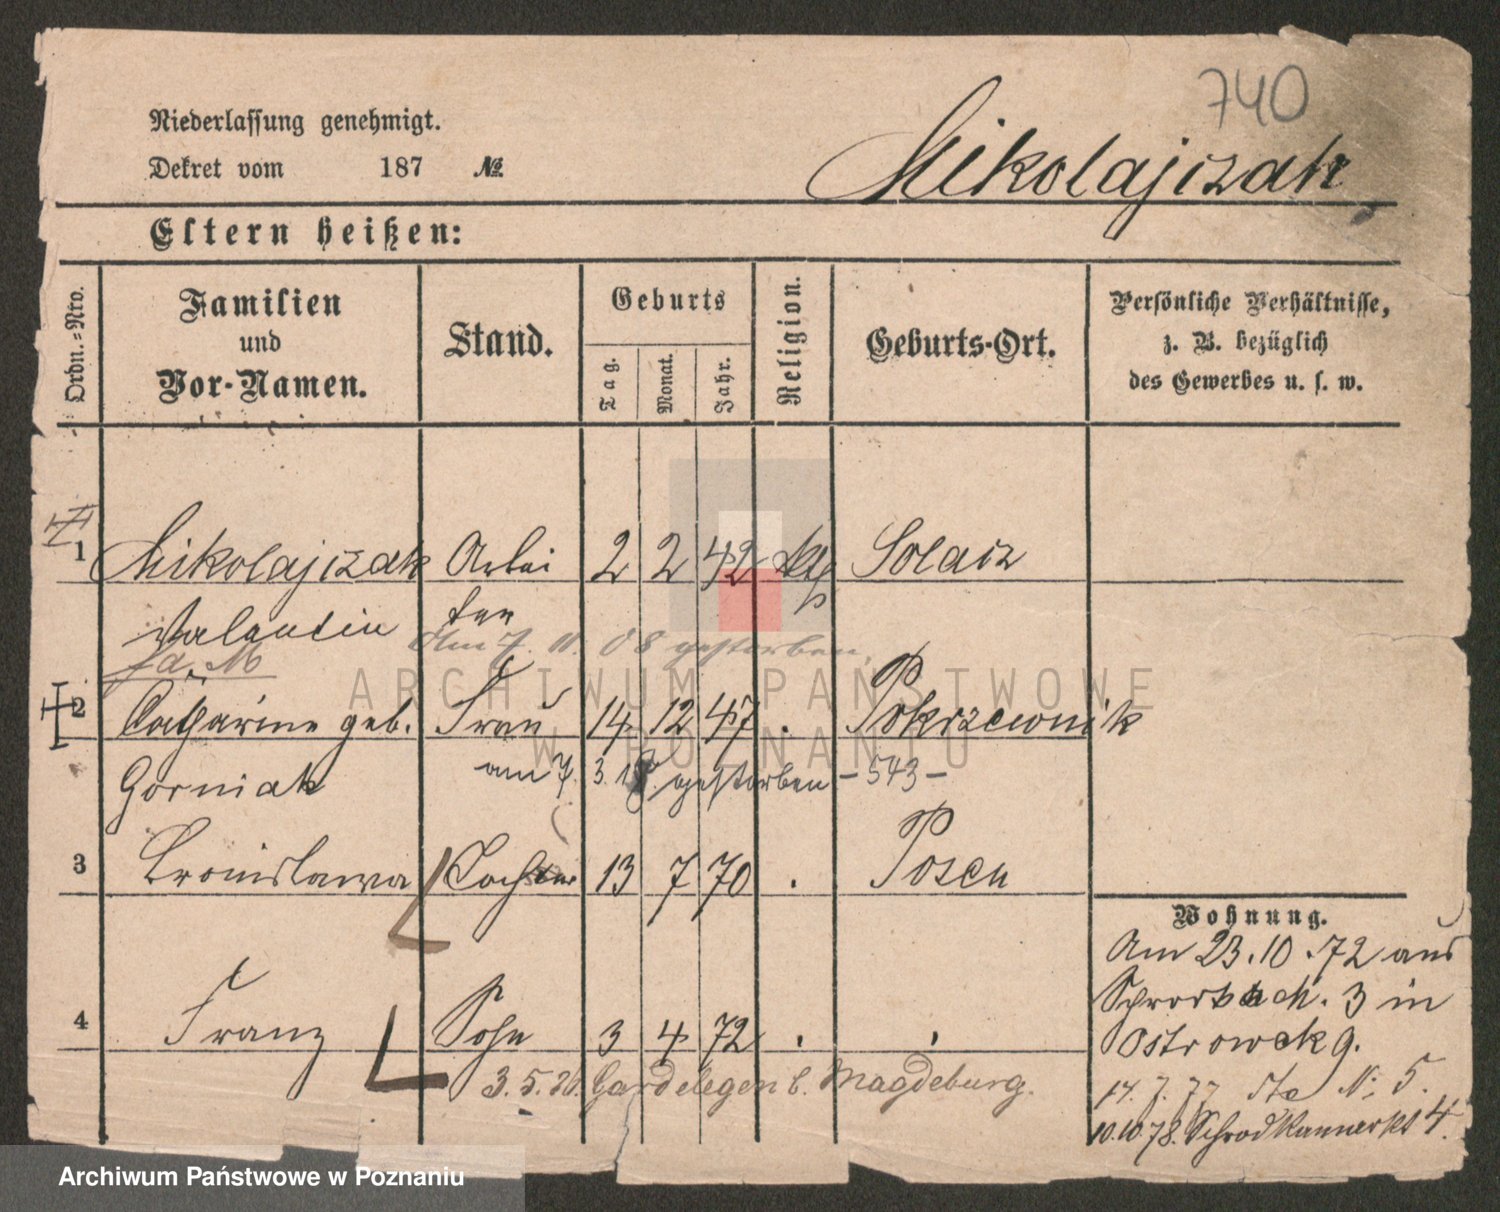 740
Niederlassung genehmigt.
Mikolajczak
Dekret vom 187 №
Eltern heißen:
Ordn.=Nro.
Familien und Vor-Namen.
Stand.
Geburts
Tag.
Monat.
Jahr.
Religion.
Geburts-Ort.
Persönliche Verhältnisse,
z. B. bezüglich
des Gewerbes u. s. w.
1 Mikolajczak Arbei 2 2 42 kth Solacz
Valentin ter
Am 7. 11. 08 gestorben.
2 Catharine geb. Frau 14 12 47 . Pokrzewnik
Gorniak am 7. 3. gestorben - 543 -
3 Bronislawa Tochter 13 7 70 . Posen
Wohnung.
Am 23.10.72 aus
3 in
4 Franz Sohn 3 4 72 . .
Ostrowek 9.
3.5. Gardelegen b. Magdeburg.
17. 7. 77 No 5.
10.10.78. 4.
ARCHIWUM PAŃSTWOWE
W POZNANIU
Archiwum Państwowe w Poznaniu